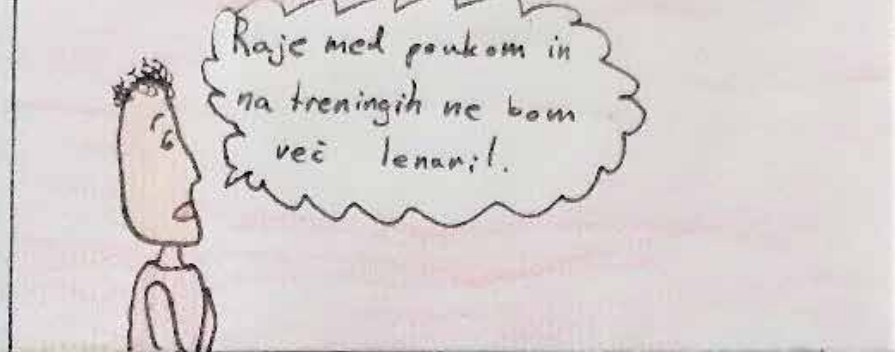 Raje med poukom in
na treningih ne bom
več lenaril.